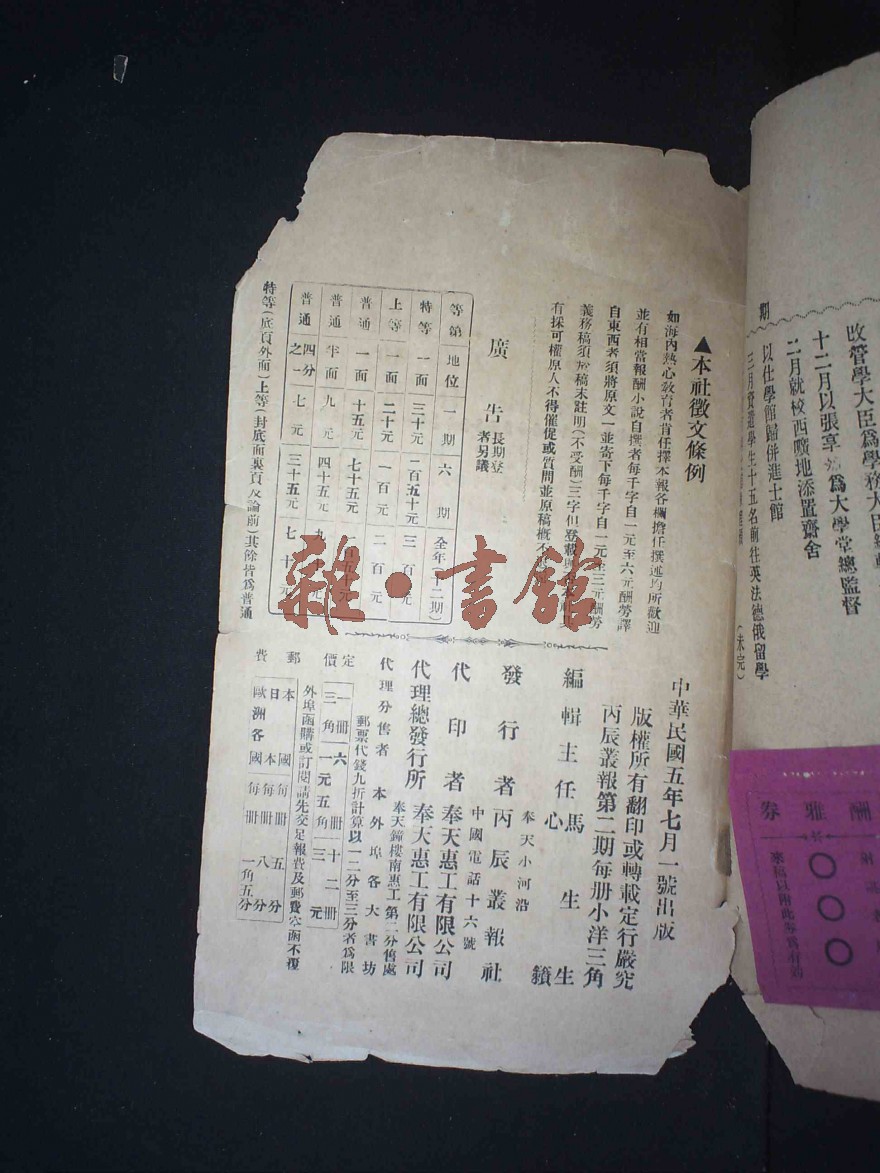 期
改管學大臣爲學務大臣
十二月以張亨
爲大學堂總監督
二月就校西曠地添置齋舍
以仕學館歸併進士館
三月資遣學生十五名前往英法德俄留學
(未完)
酬雅券
○○○
▲本社徵文條例
如海內熱心敎育者肯任擇本報各欄擔任撰述均所歡迎
並有相當報酬小說自撰者每千字自一元至六元酬勞譯
自東西者須將原文一並寄下每千字自一元至三元酬勞
義務稿須於稿末註明(不受酬)三字但登載與
有採可權原人不得催促或質問並原稿概不
廣告
長期登者另議
等第 地位 一期 六期 全年(十二期)
特等 一面 三十元 一百五十元 三百元
上等 一面 二十元 一百元 二百元
普通 一面 十五元 七十五元
普通 半面 九元 四十五元
普通 四分之一 七元 三十五元 七十元
特等(底頁外面)上等(封底面裏頁及論前)其餘皆爲普通
中華民國五年七月一號出版
版權所有翻印或轉載定行嚴究
丙辰叢報第二期每册小洋三角
編輯主任 馬生 心生 籟
奉天小河沿
發行者 丙辰叢報社
中國電話十六號
代印者 奉天惠工有限公司
代理總發行所 奉天惠工有限公司
奉天鐘樓南惠工第二分售處
代理分售者 本外埠各大書坊
郵票代錢九折計算以一二分至三分者爲限
定價 一册 三角 六册 一元五角 十二册 三元
外埠函購或訂閱請先交足報費及郵費空函不覆
郵費 本國每册五分
日本每册八分
歐洲各國每册一角五分
雜·書館